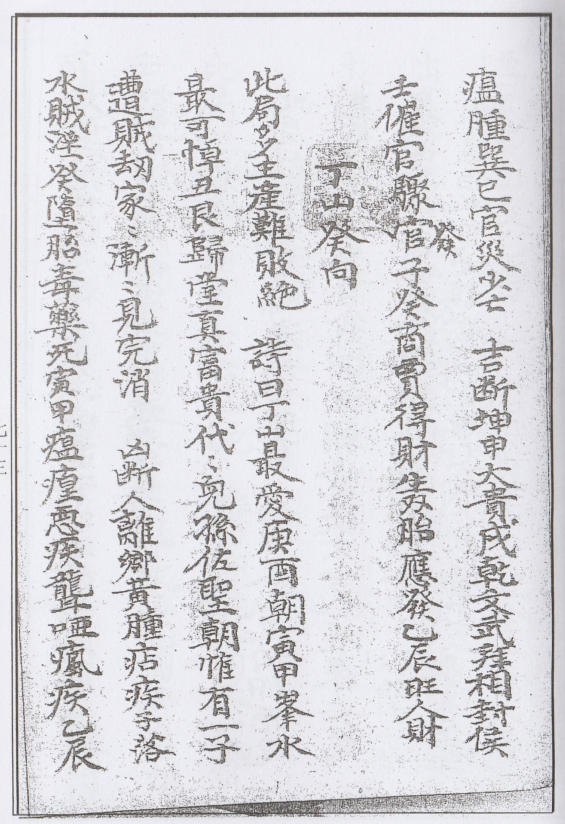 瘟腫巽巳官災少亡　吉断坤申大貴戌乾文武拜相封侯
壬催官驟官子癸商賈得財生双胎應發乙辰旺人財
發
丁山癸向
此局多主産難敗絶　詩曰丁山最愛庚酉朝寅甲峯水
最可悼丑艮歸堂真富貴代〻兒孫佐聖朝惟有一子
遭賊劫家〻漸〻見完消　凶断人離鄉黃腫痁疾子落
水賊淫癸墮胎毒藥死寅甲瘟㾮惡疾聾啞瘋疾乙辰